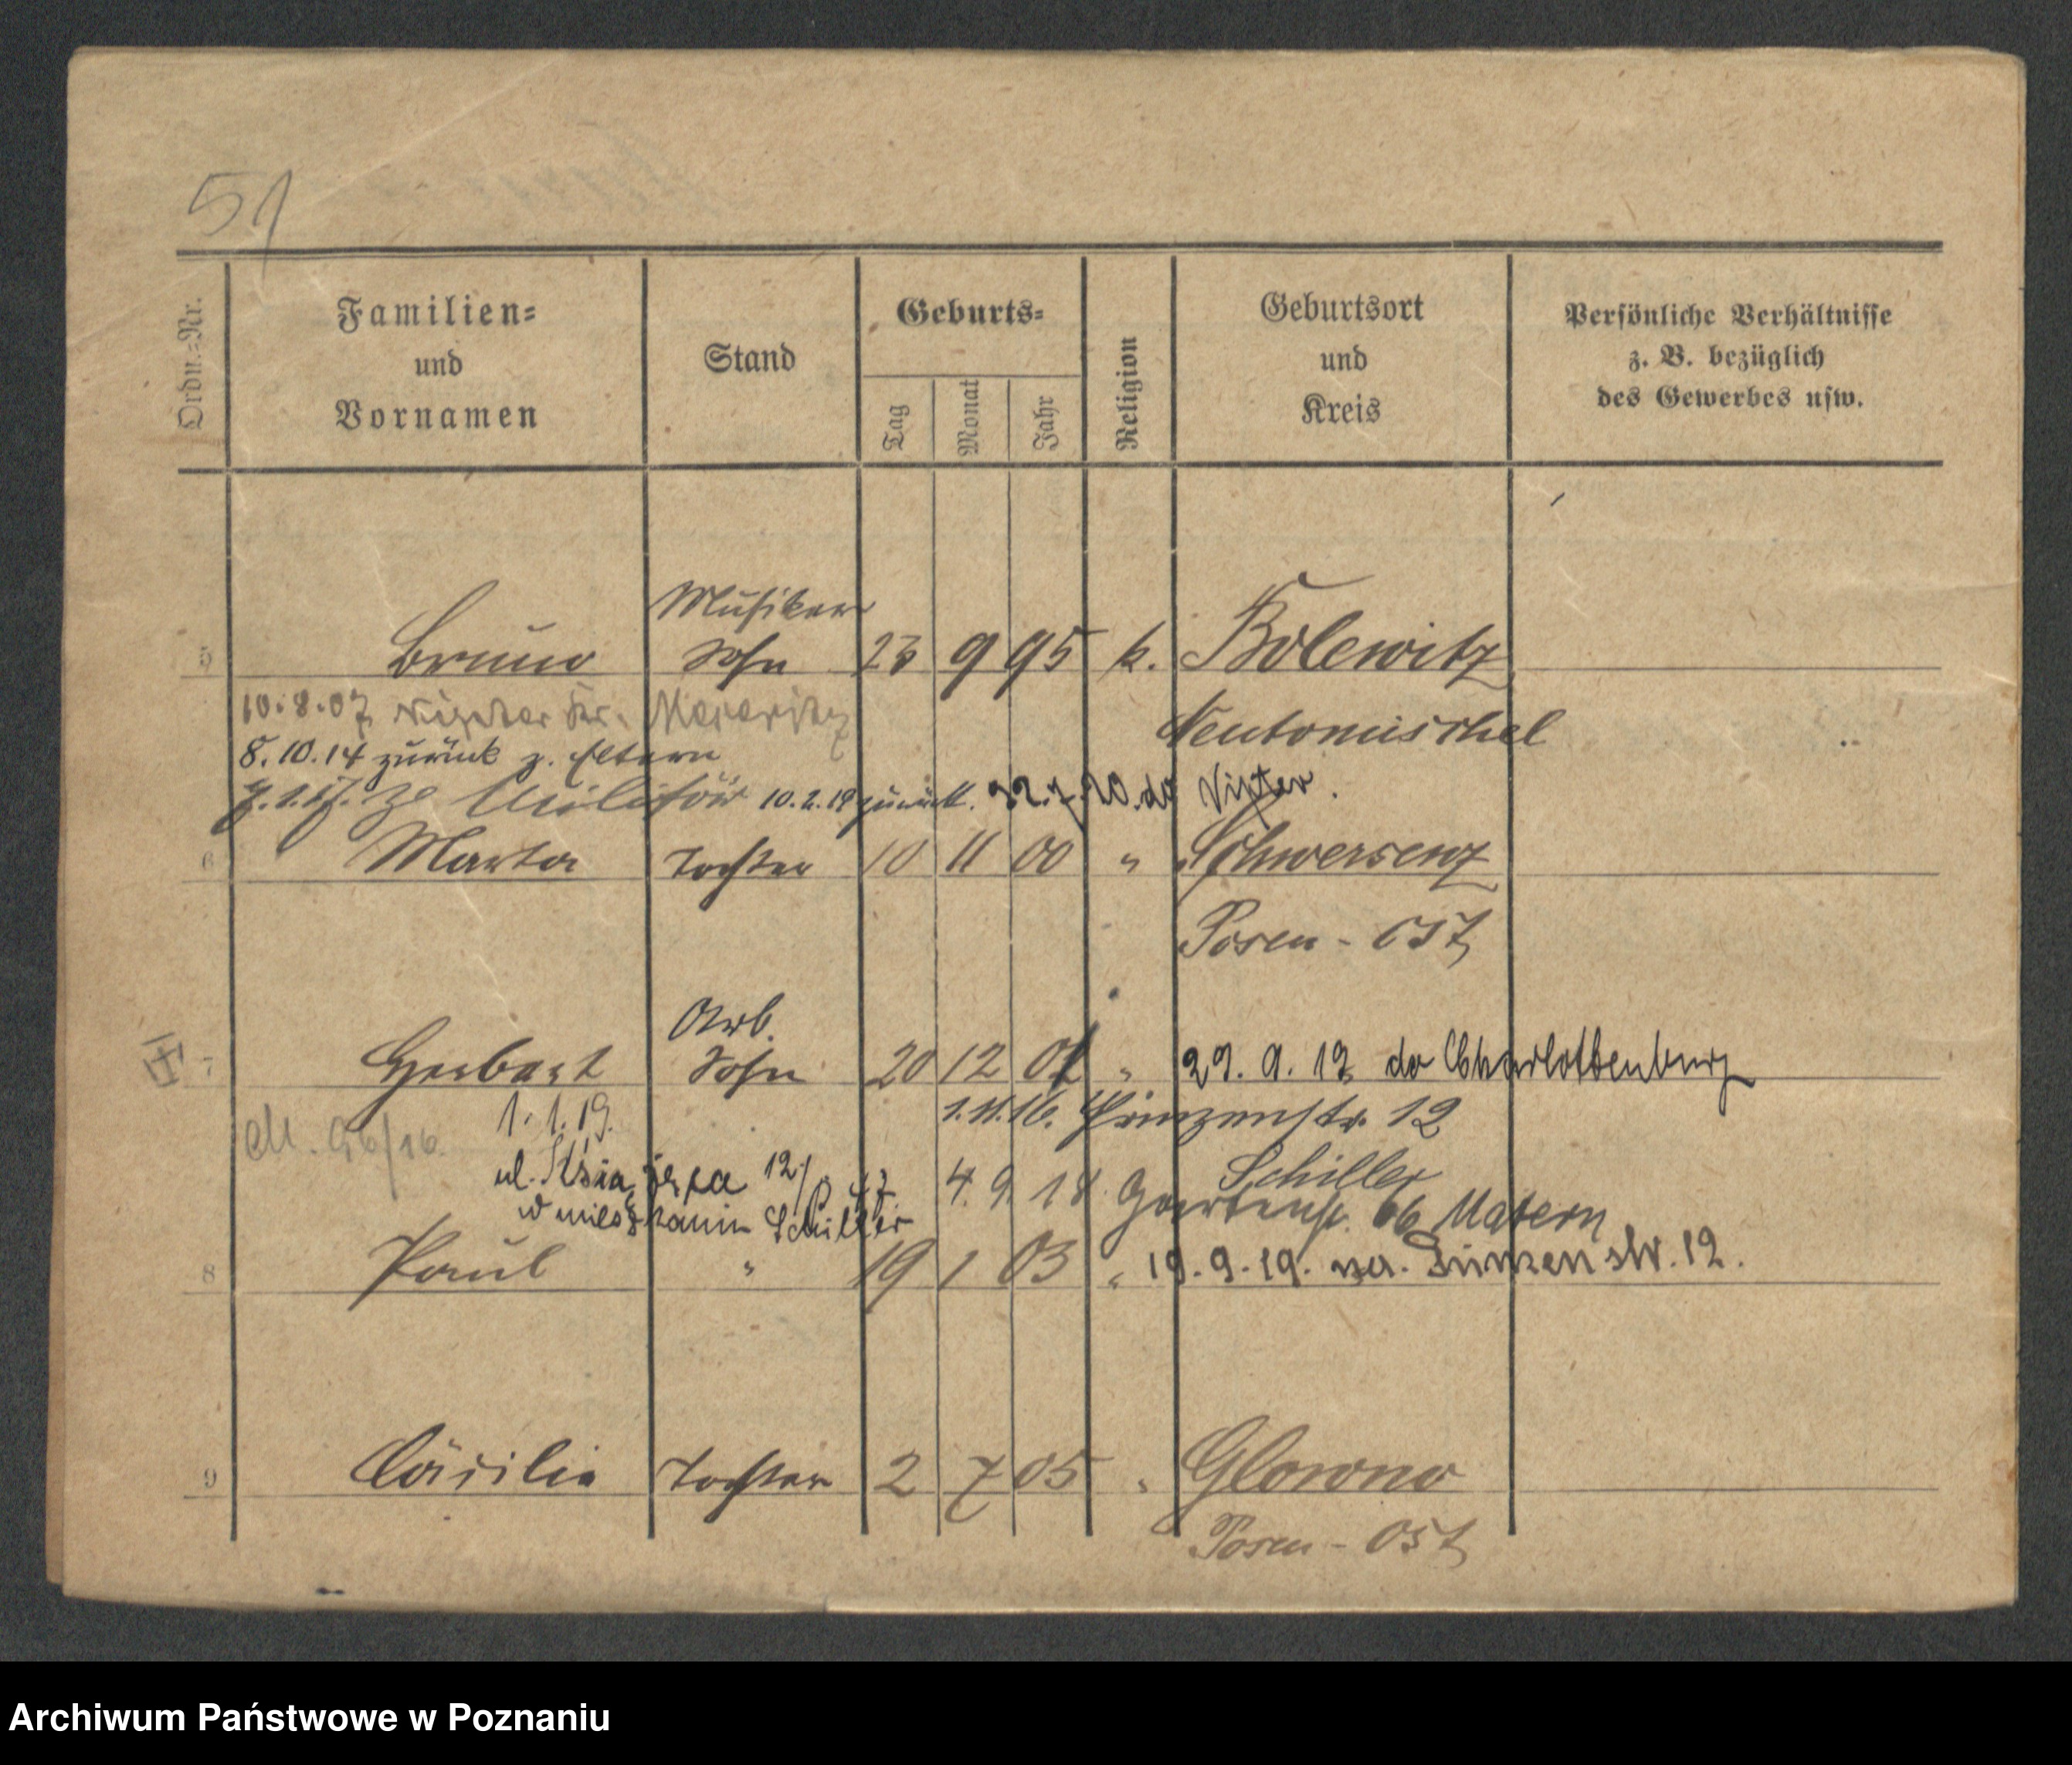 51
Ordn.-Nr.
Familien-
und
Vornamen
Stand
Geburts-
Tag
Monat
Jahr
Religion
Geburtsort
und
Kreis
Persönliche Verhältnisse
z. B. bezüglich
des Gewerbes usw.
Musiker
5 Bruno Sohn 23 9 95 k. Bolewitz
10.8.07 Meseritz
Neutomischel
8.10.14 zurück z. Eltern
Militär 10.2.19 zurück. do
6 Marta Tochter 10 11 00 " Schwersenz
Posen - Ost
Arb.
7 Herbert Sohn 20 12 01 " 29. 9. 19 do Charlottenburg
1.1.19.
1.11.16. Prinzenstr. 12
96/16.
ul. Książęca 12/
4. 9. 18 Schiller
Gartenstr. 66 Matern
w mieszkaniu Schiller
8 Paul " 19 1 03 " 19.9.19. 12.
9 Cäcilie Tochter 2 7 05 " Glowno
Posen - Ost
Archiwum Państwowe w Poznaniu